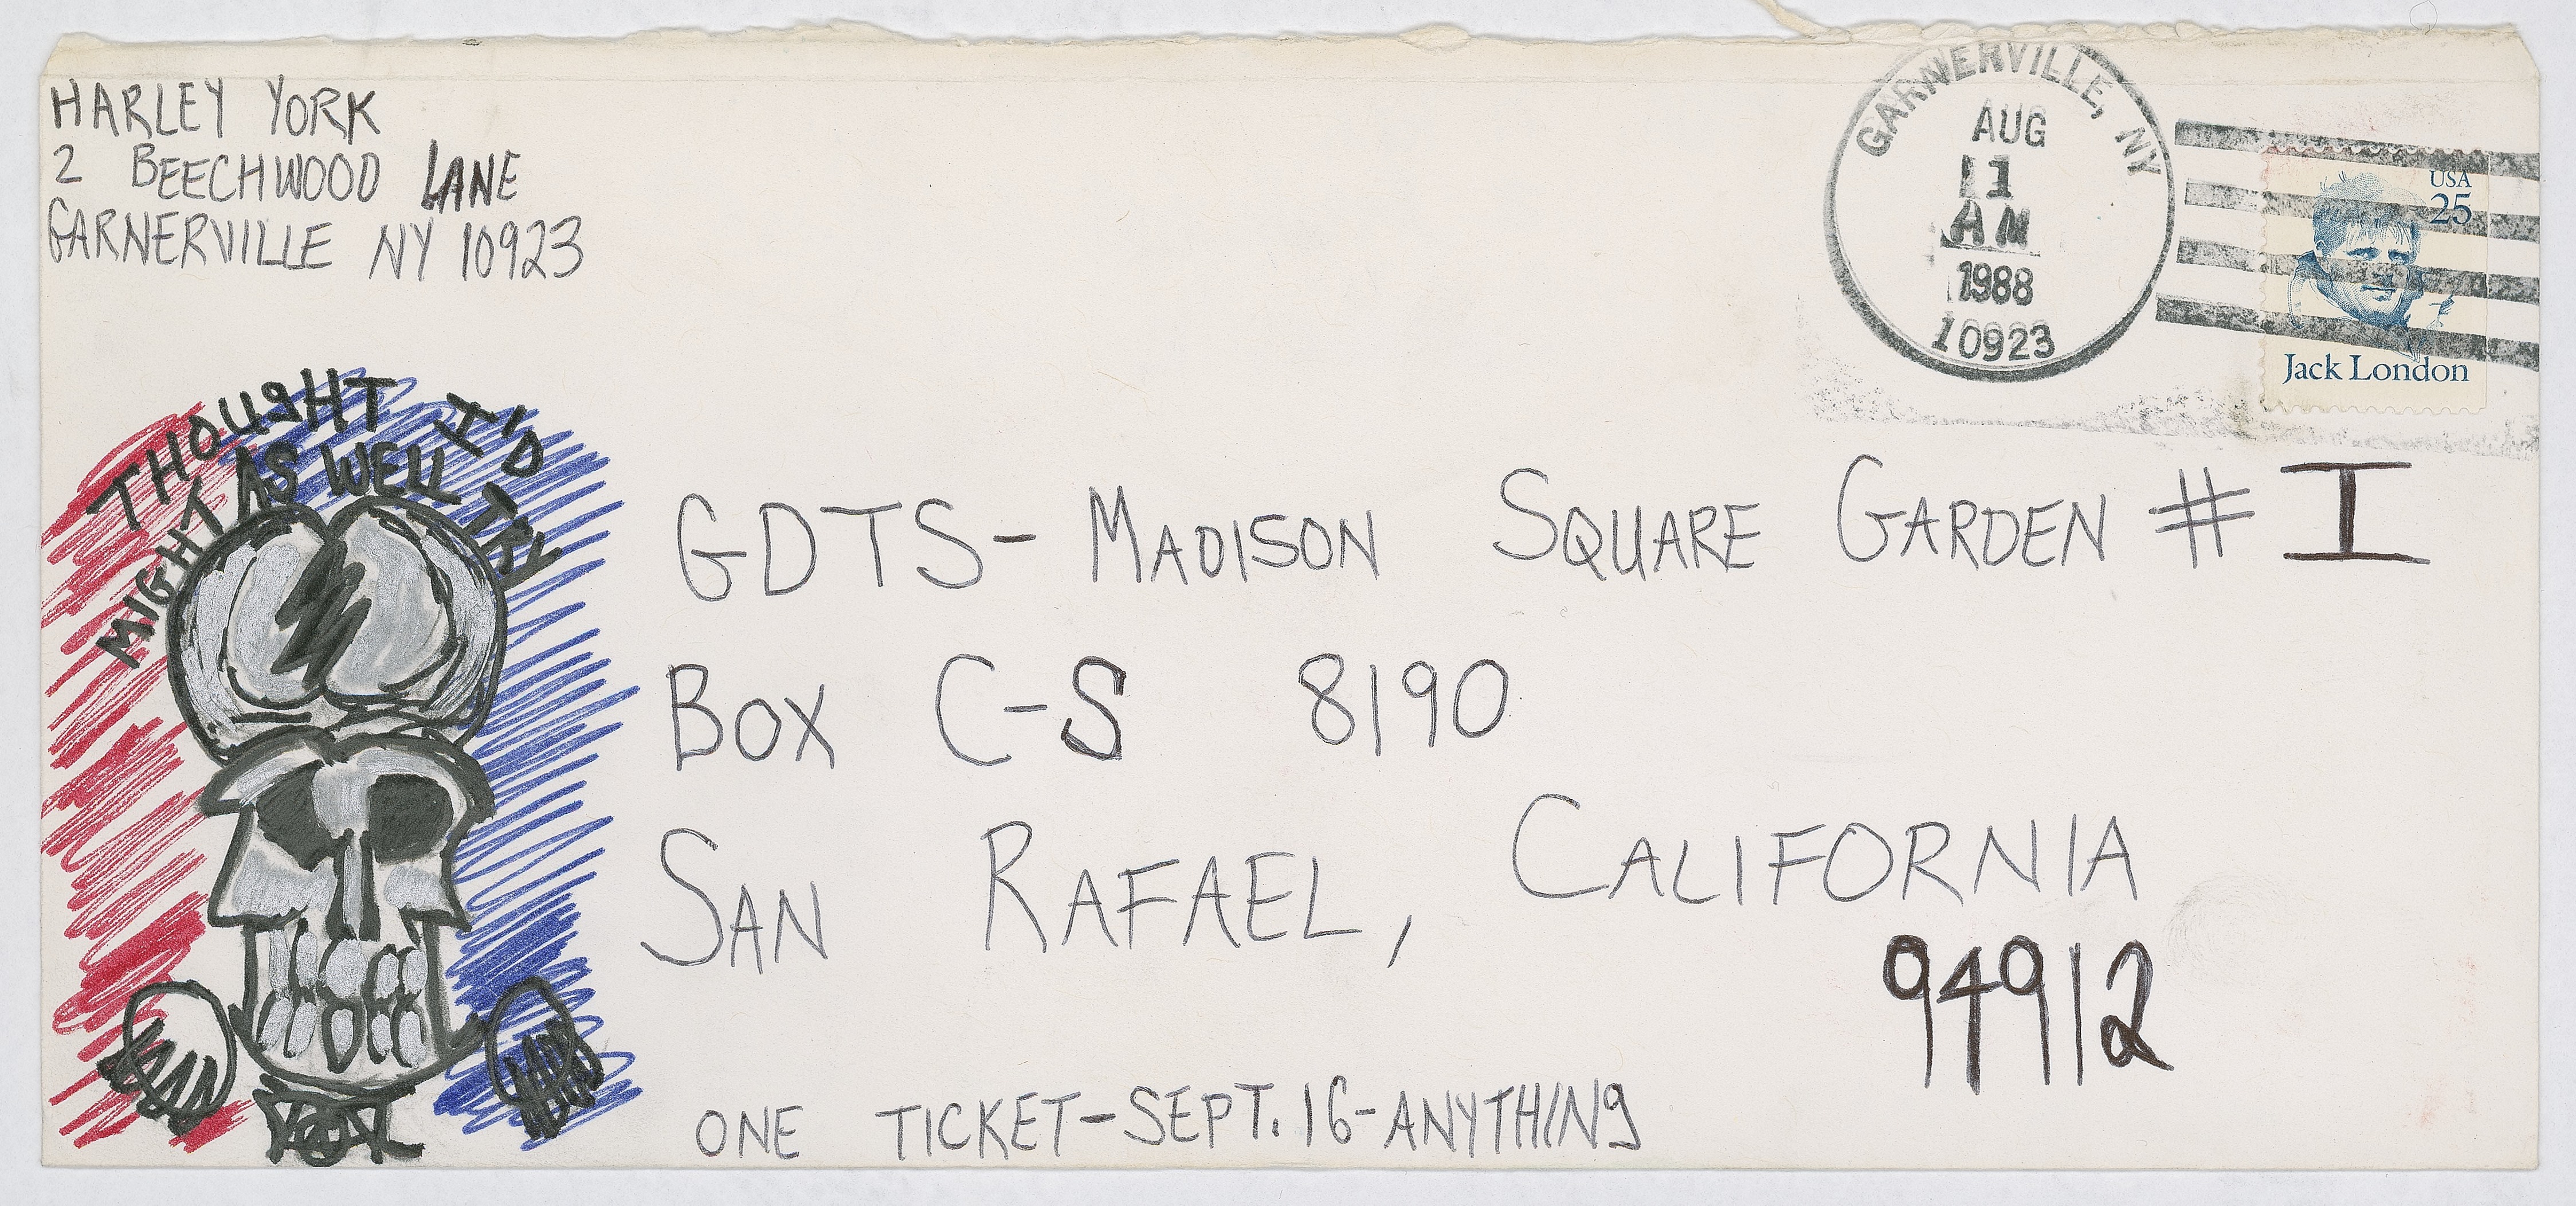 HARLEY YORK
2 BEECHWOOD LANE
GARNERVILLE NY 10923
GARNERVILLE, NY
AUG
11
AM
1988
10923
USA
25
Jack London
THOUGHT I'D
MIGHT AS WELL TRY
GDTS- MADISON SQUARE GARDEN # I
BOX C-S 8190
SAN RAFAEL, CALIFORNIA
94912
ONE TICKET-SEPT. 16-ANYTHING
YORK